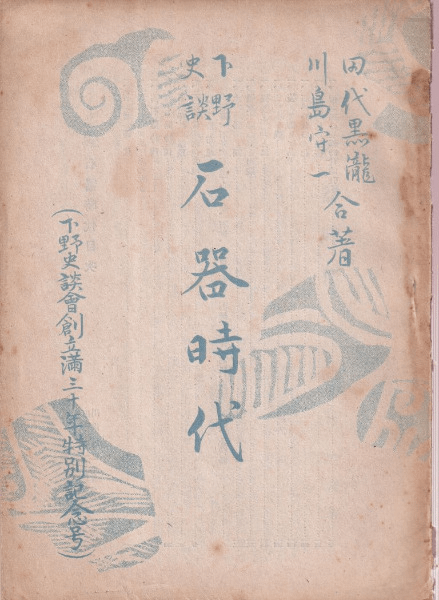 田代黒瀧
川島守一
合著
下野
史談
石器時代
(下野史談會創立満三十年特別記念号)